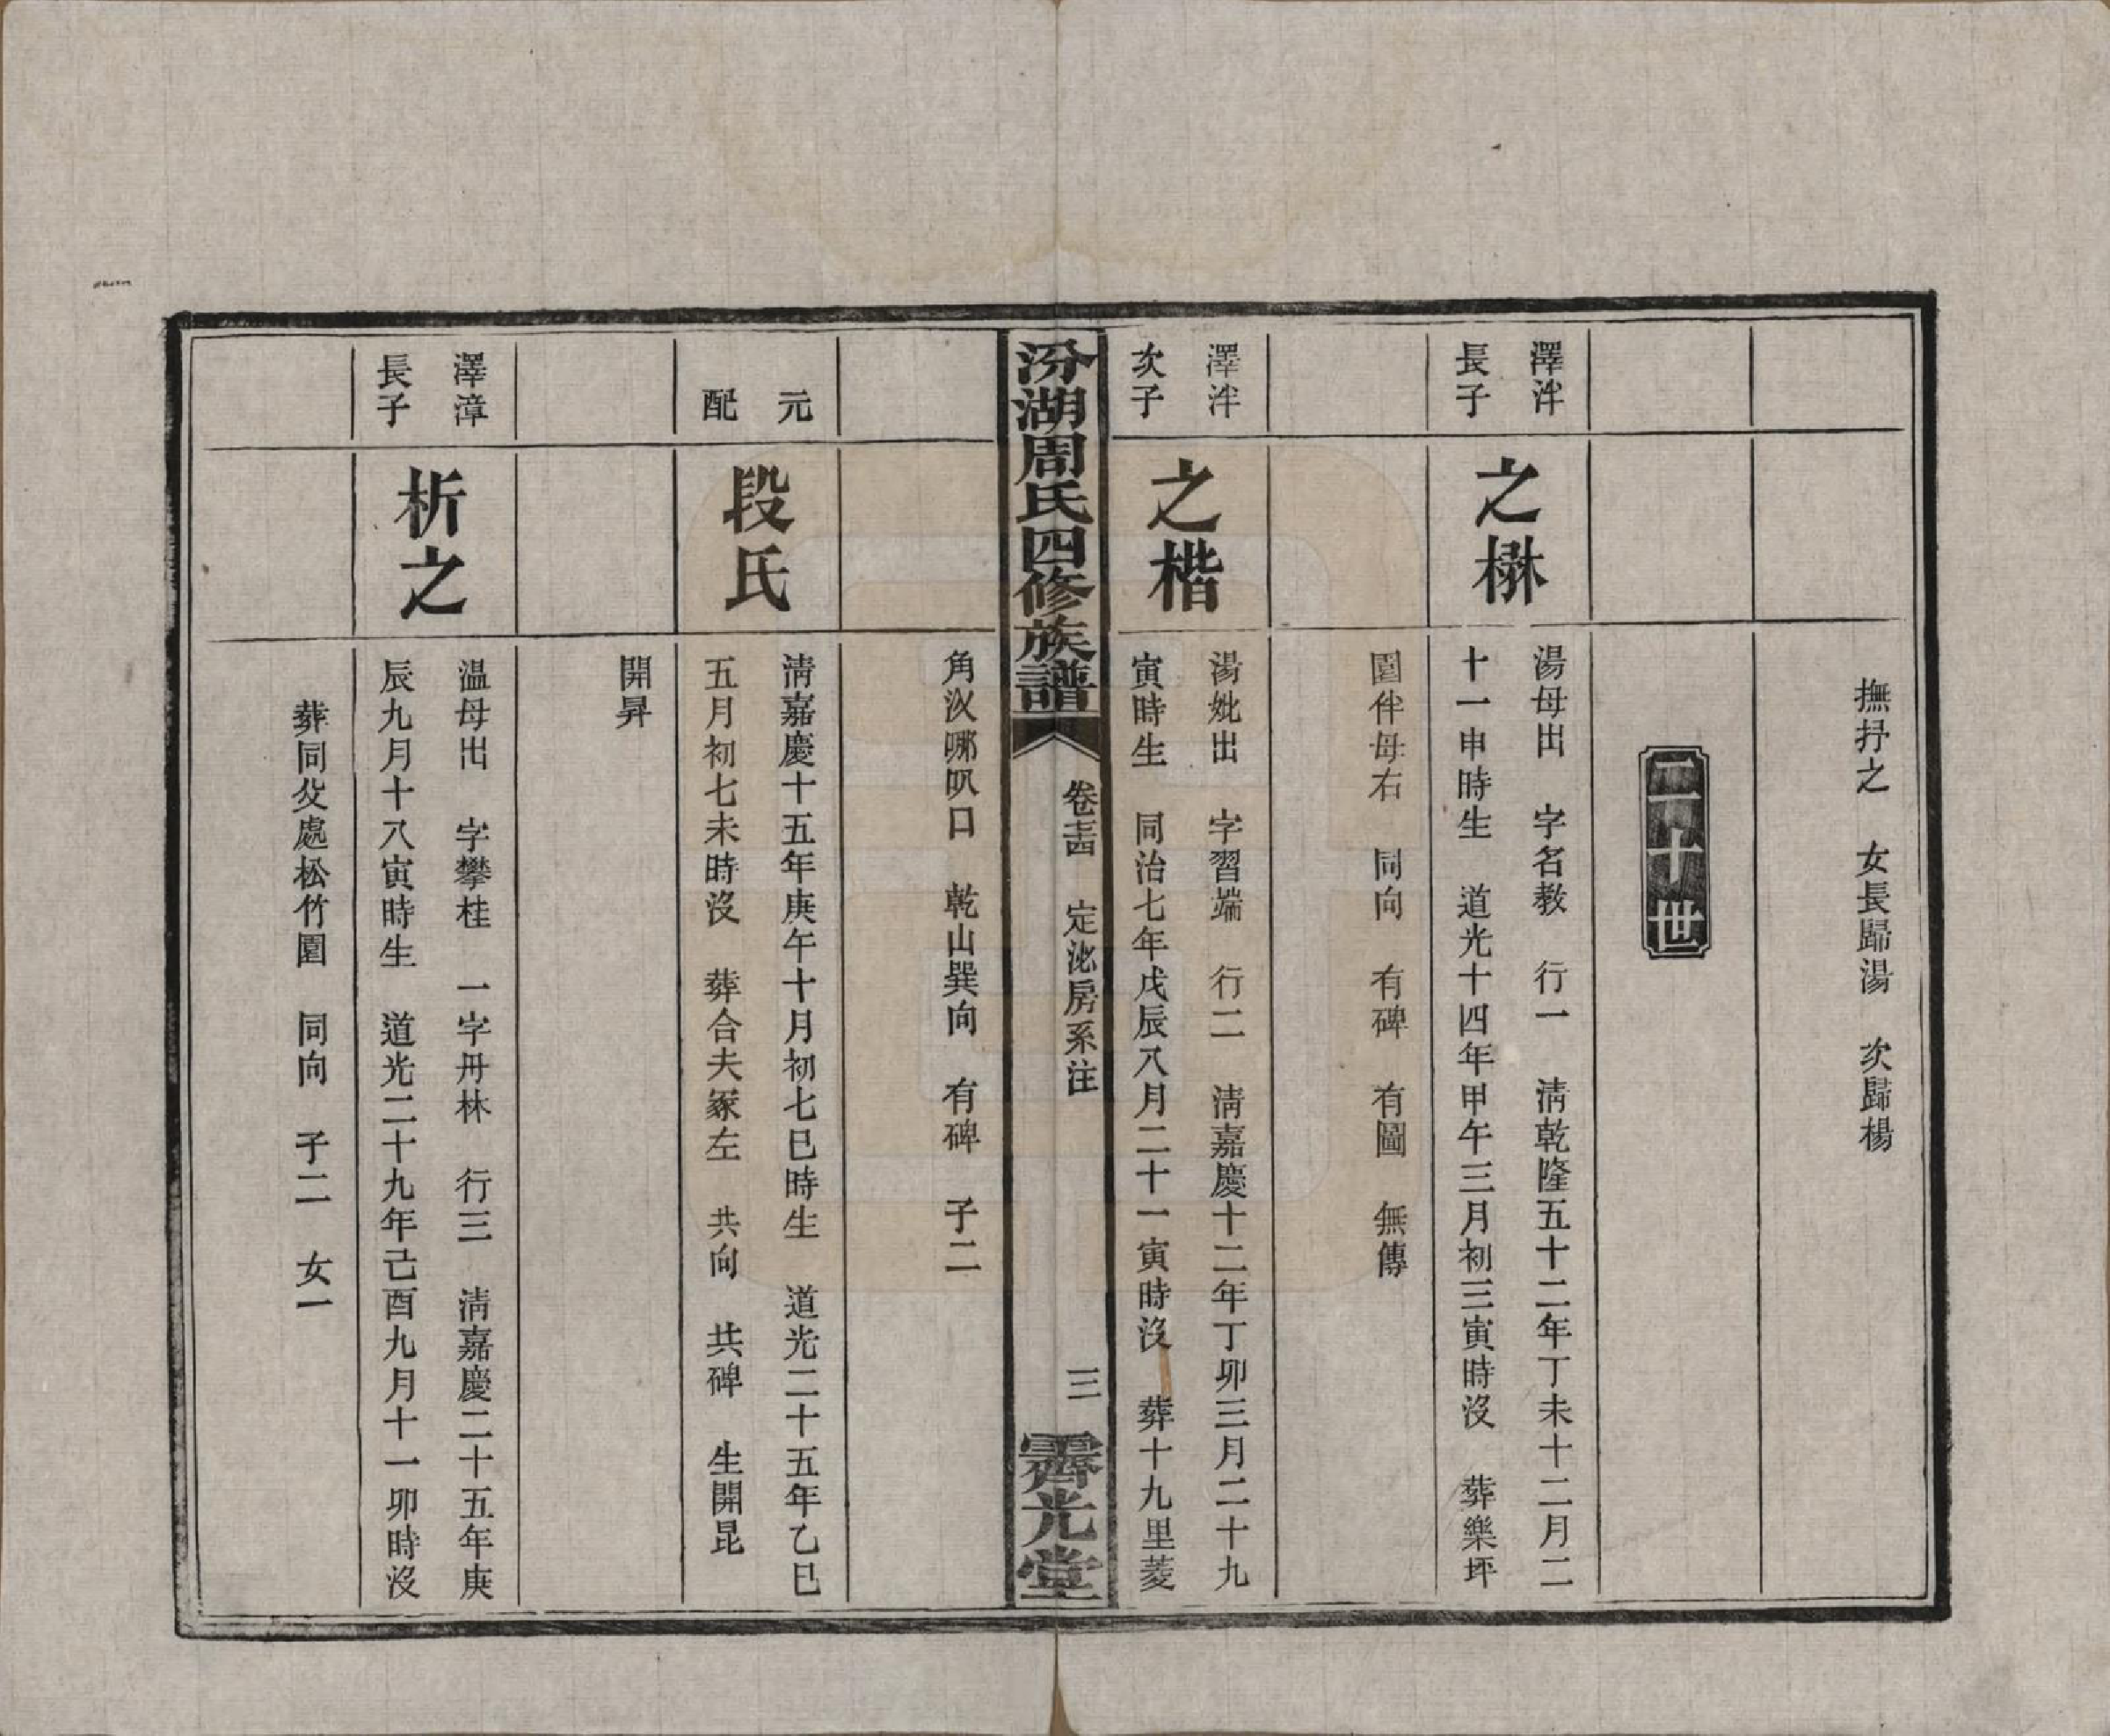 撫抒之　女長歸湯　次歸楊
二十世
澤泮
長子
之楙
湯母出　字名教　行一　淸乾隆五十二年丁未十二月二
十一申時生　道光十四年甲午三月初三寅時沒　葬樂坪
園伴母右　同向　有碑　有圖　無傳
澤泮
次子
之楷
湯妣出　字習端　行二　淸嘉慶十二年丁卯三月二十九
寅時生　同治七年戊辰八月二十一寅時沒　葬十九里菱
汾湖周氏四修族譜
卷　定沘房系注
三
霽光堂
角汊哪叭口　乾山巽向　有碑　子二
元
配
段氏
淸嘉慶十五年庚午十月初七巳時生　道光二十五年乙巳
五月初七未時沒　葬合夫冢左　共向　共碑　生開昆
開昇
澤漳
長子
析之
溫母出　字攀桂　一字丹林　行三　淸嘉慶二十五年庚
辰九月十八寅時生　道光二十九年己酉九月十一卯時沒
葬同父處松竹園　同向　子二　女一